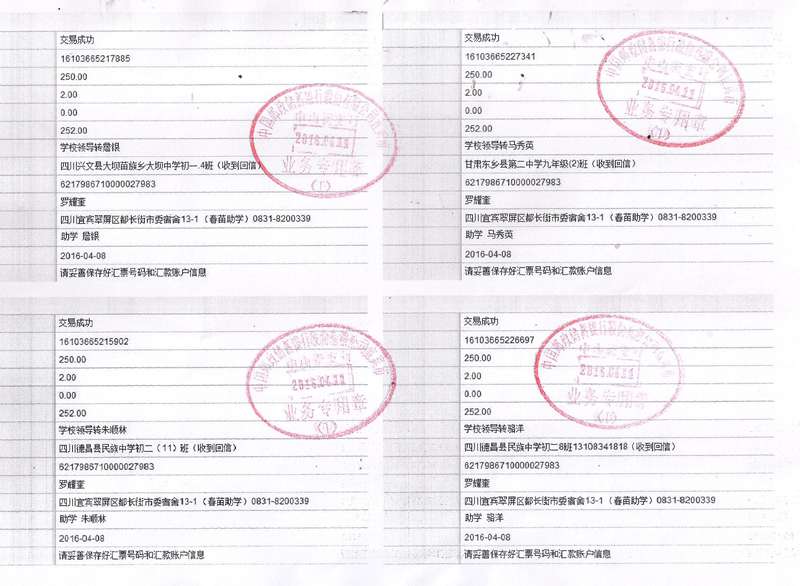 交易成功
16103665217885
250.00
2.00
0.00
252.00
学校领导转詹银
四川兴文县大坝苗族乡大坝中学初一.4班（收到回信）
6217986710000027983
罗耀奎
四川宜宾翠屏区都长街市委宿舍13-1（春苗助学）0831-8200339
助学 詹银
2016-04-08
请妥善保存好汇票号码和汇款账户信息
2016.04.11
业务专用章
(1)
交易成功
16103665227341
250.00
2.00
0.00
252.00
学校领导转马秀英
甘肃东乡县第二中学九年级(2)班（收到回信）
6217986710000027983
罗耀奎
四川宜宾翠屏区都长街市委宿舍13-1（春苗助学）0831-8200339
助学 马秀英
2016-04-08
请妥善保存好汇票号码和汇款账户信息
2016.04.11
业务专用章
(1)
交易成功
16103665215902
250.00
2.00
0.00
252.00
学校领导转朱顺林
四川德昌县民族中学初二（11）班（收到回信）
6217986710000027983
罗耀奎
四川宜宾翠屏区都长街市委宿舍13-1（春苗助学）0831-8200339
助学 朱顺林
2016-04-08
请妥善保存好汇票号码和汇款账户信息
2016.04.11
业务专用章
(1)
交易成功
16103665226697
250.00
2.00
0.00
252.00
学校领导转骆洋
四川德昌县民族中学初二8班13108341818（收到回信）
6217986710000027983
罗耀奎
四川宜宾翠屏区都长街市委宿舍13-1（春苗助学）0831-8200339
助学 骆洋
2016-04-08
请妥善保存好汇票号码和汇款账户信息
2016.04.11
业务专用章